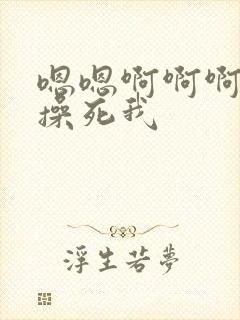 嗯嗯啊啊啊
操死我
浮生若夢